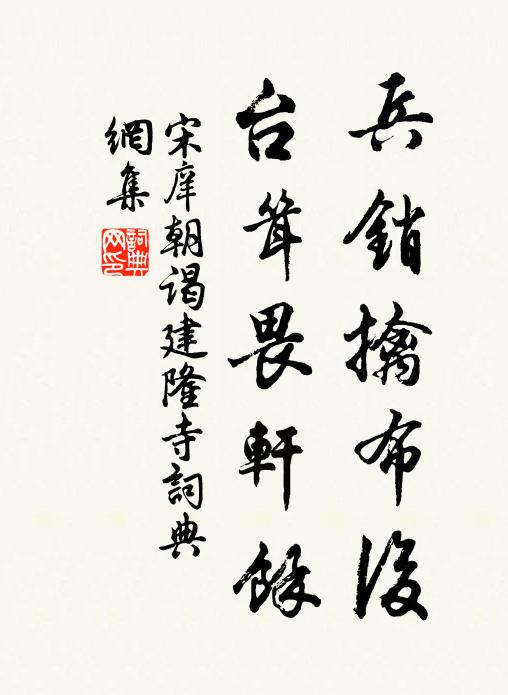 兵銷擒布後
台聳畏軒餘
宋庠朝謁建隆寺詞典
網集
詞典
网印